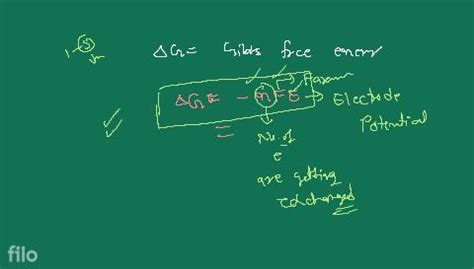 ΔG = Gibbs free energy
ΔG = - nFE → Electrode
Potential
No. of
e
are getting
exchanged
filo